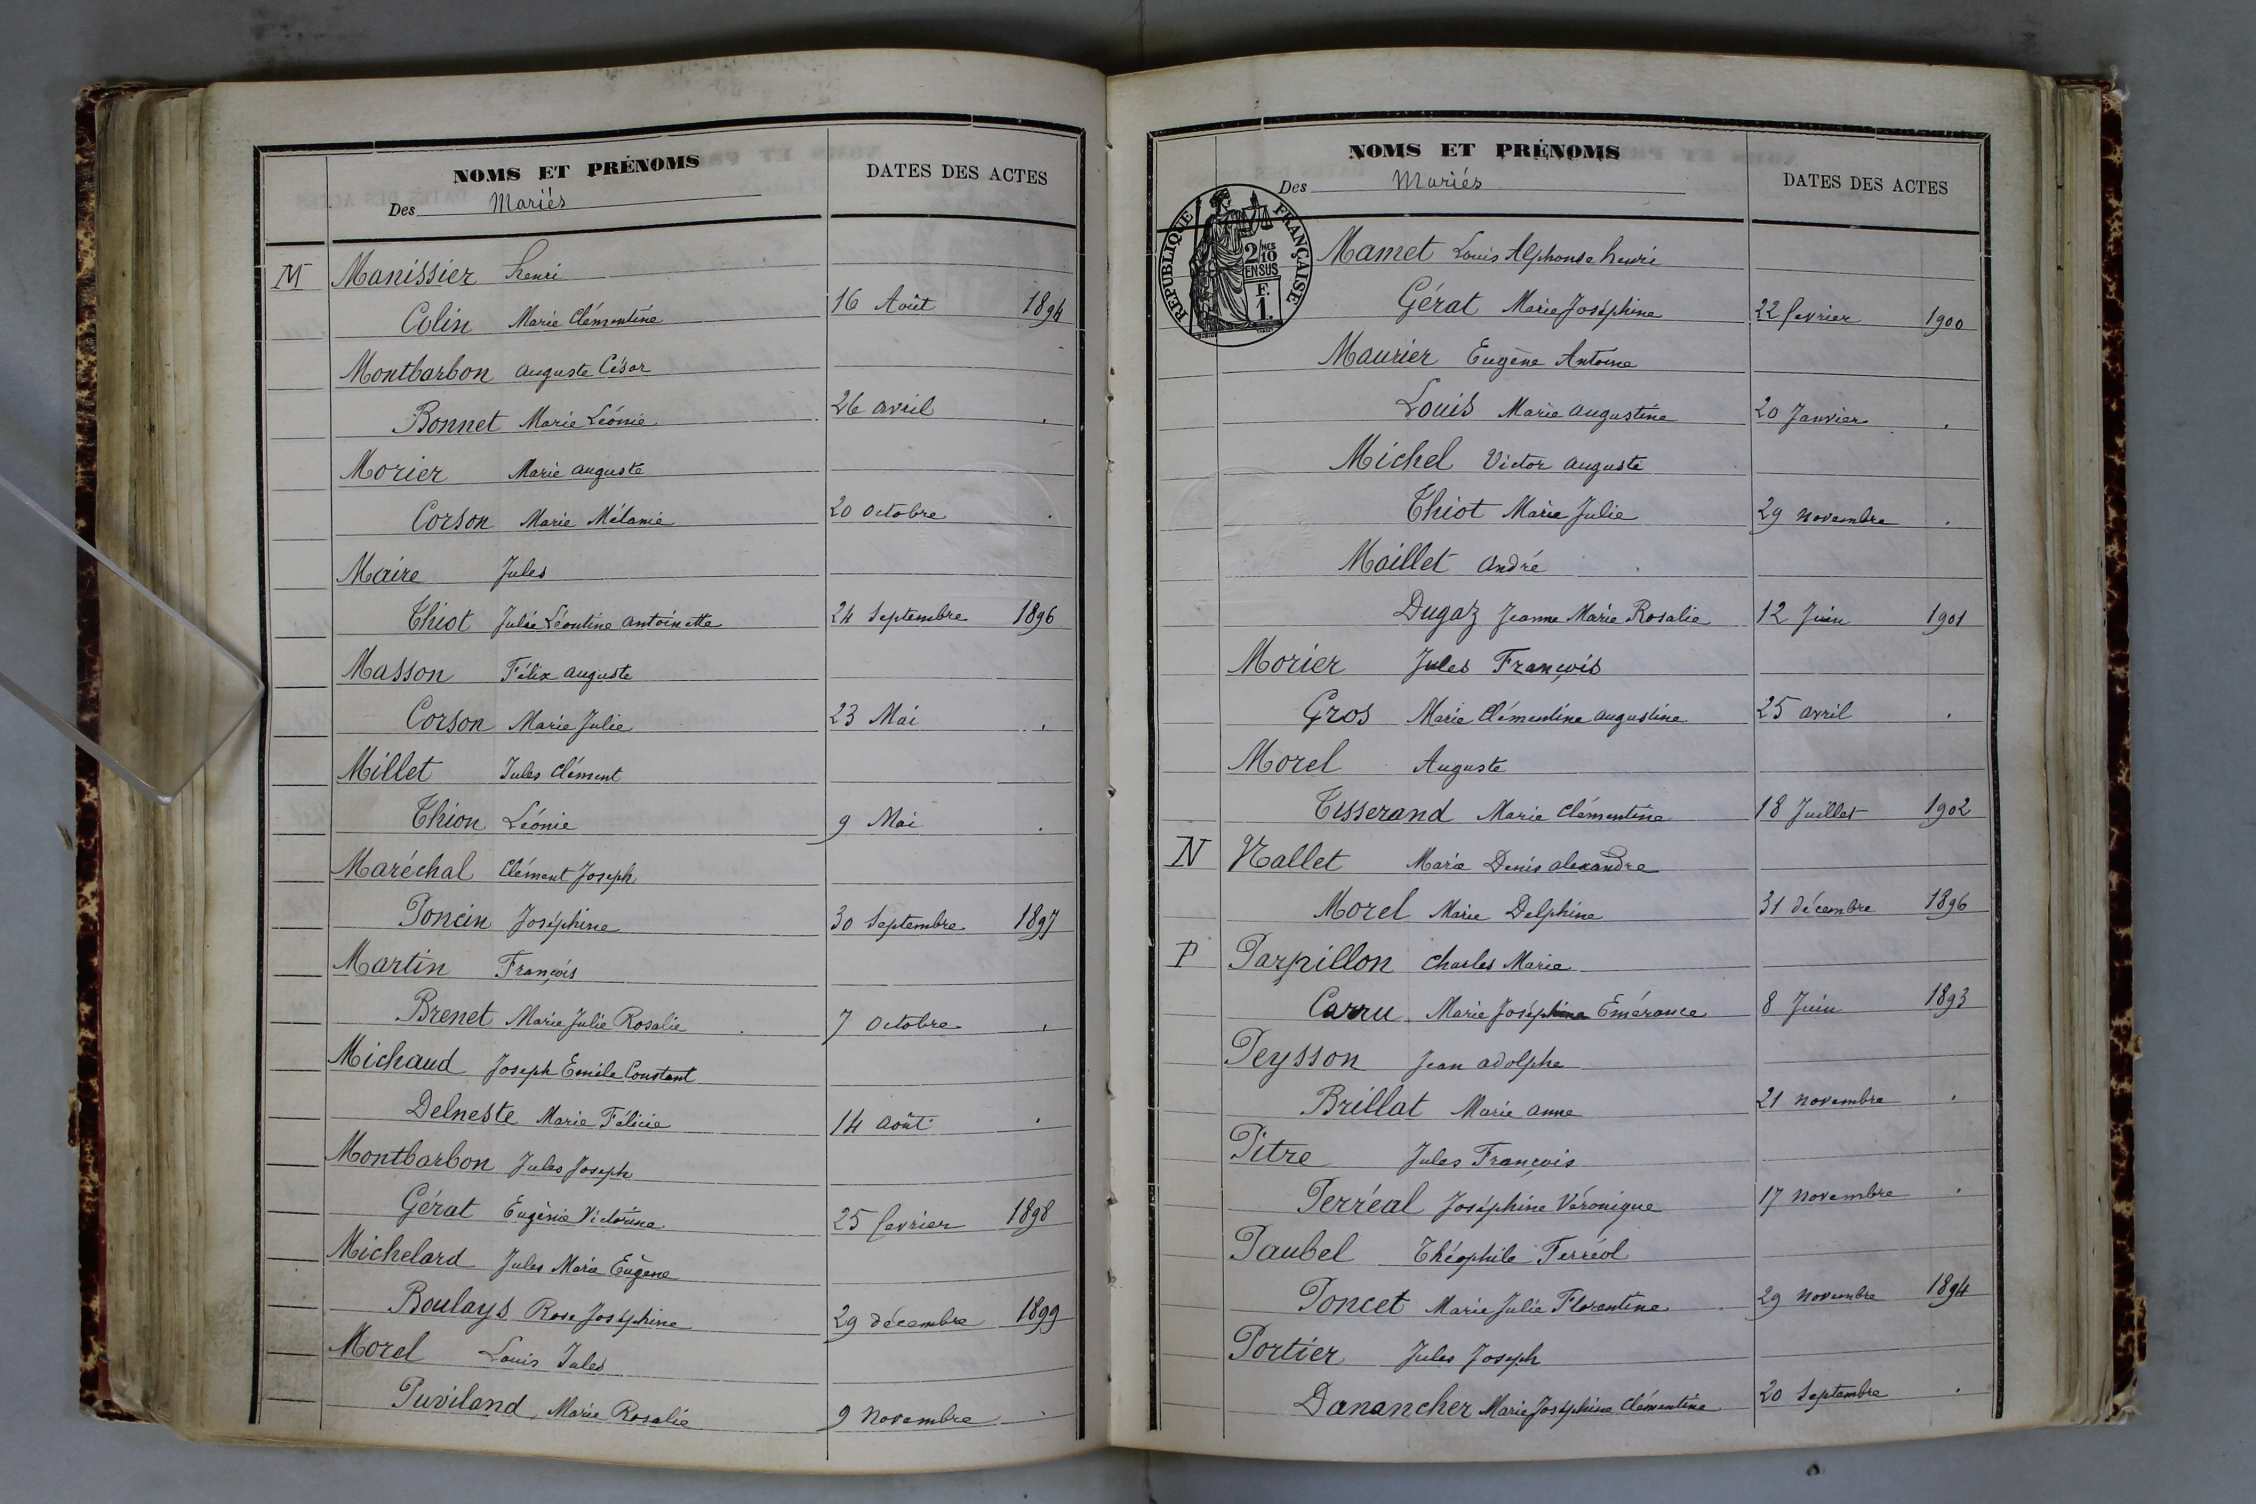 NOMS ET PRÉNOMS
DATES DES ACTES
Des Mariés
M Manissier henri
Colin Marie Clémentine 16 Août 1894
Montbarbon auguste César
Bonnet Marie Léonie 26 avril .
Morier Marie auguste
Corson Marie Mélanie 20 octobre .
Maire Jules
Thiot Julie Léontine antoinette 24 Septembre 1896
Masson Félix auguste
Corson Marie Julie 23 Mai .
Millet Jules Clément
Thion Léonie 9 Mai .
Maréchal Clément Joseph
Poncin Joséphine 30 Septembre 1897
Martin François
Brenet Marie Julie Rosalie 7 octobre .
Michaud Joseph Emile Constant
Delneste Marie Félicie 14 août .
Montbarbon Jules Joseph
Gérat Eugènie Victorine 25 fevrier 1898
Michelard Jules Marie Eugène
Boulays Rose Joséphine 29 décembre 1899
Morel Louis Jules
Puviland Marie Rosalie 9 novembre .
NOMS ET PRÉNOMS
DATES DES ACTES
Des Mariés
RÉPUBLIQUE FRANÇAISE
2/10 MES
EN SUS
F.
1.
Mamet Louis Alphonse henri
Gérat Marie Joséphine 22 fevrier 1900
Maurier Eugène Antoine
Louis Marie augustine 20 Janvier .
Michel Victor auguste
Thiot Marie Julie 29 novembre .
Moillet andré
Dugaz Jeanne Marie Rosalie 12 Juin 1901
Morier Jules François
Gros Marie Clémentine augustine 25 avril .
Morel Auguste
Tisserand Marie Clémentine 18 Juillet 1902
N Nallet Marie Denis alexandre
Morel Marie Delphine 31 décembre 1896
P Parpillon Charles Marie
Carru Marie Joséphine Emérance 8 Juin 1893
Peysson Jean adolphe
Brillat Marie anne 21 novembre .
Pitre Jules François
Perréal Joséphine Véronique 17 novembre .
Paubel Théophile Ferréol
Poncet Marie Julie Florentine 29 novembre 1894
Portier Jules Joseph
Danancher Marie Joséphine Clémentine 20 Septembre .